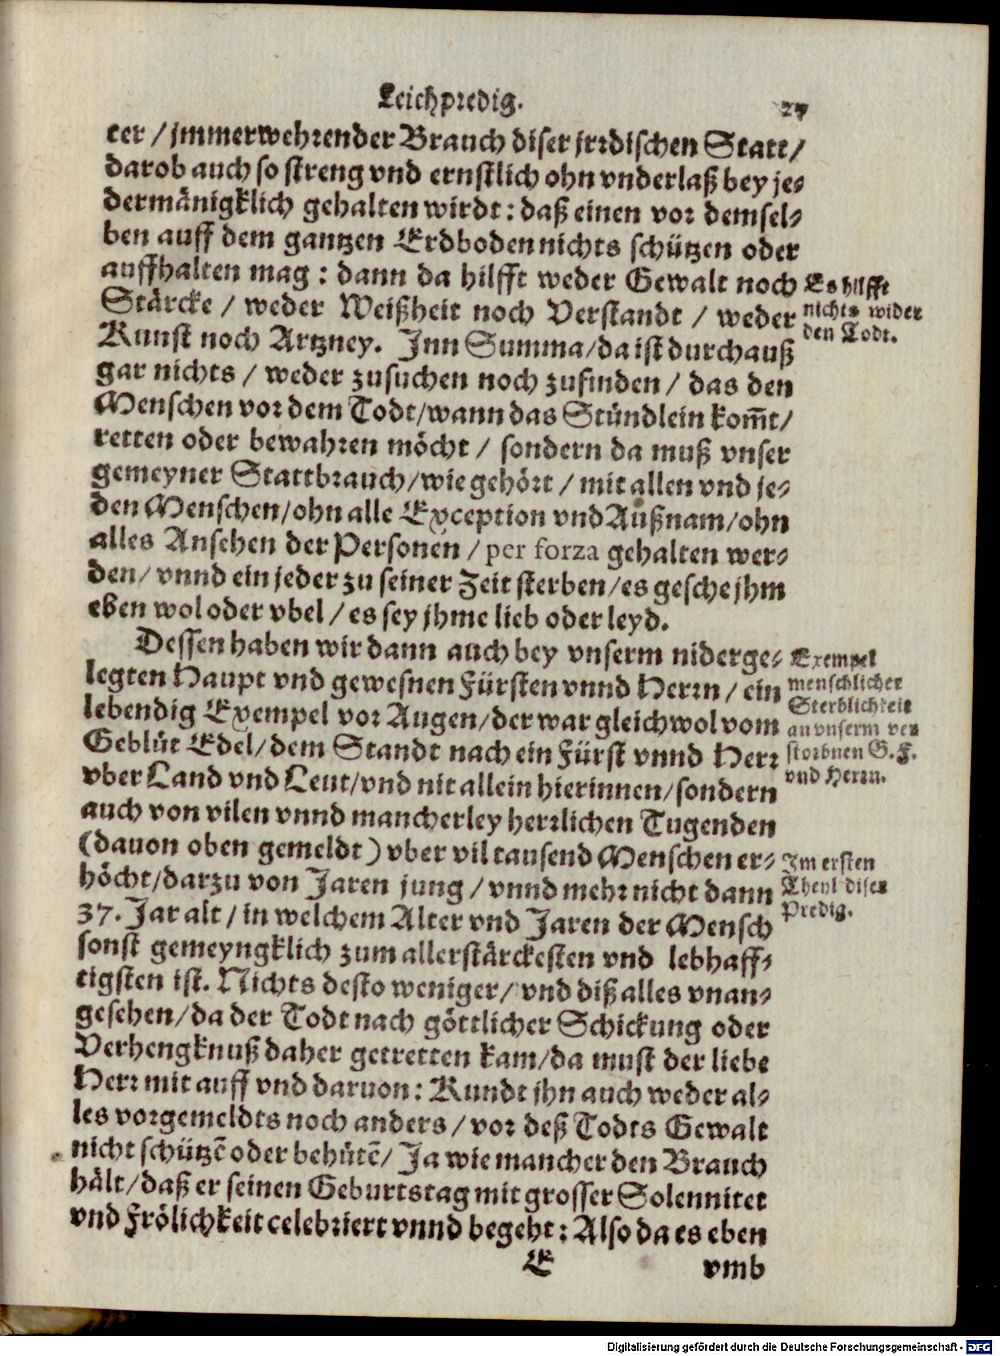 Leichpredig. 27
ter / jmmerwehrender Brauch diser jrrdischen Statt /
darob auch so streng vnd ernstlich ohn vnderlaß bey je-
dermänigklich gehalten wirdt : daß einen vor demsel-
ben auff dem gantzen Erdboden nichts schützen oder
auffhalten mag : dann da hilfft weder Gewalt noch
Stärcke / weder Weißheit noch Verstandt / weder
Kunst noch Artzney. Inn Summa / da ist durchauß
gar nichts / weder zusuchen noch zufinden / das den
Menschen vor dem Todt / wann das Stündlein kom̃t /
retten oder bewahren möcht / sondern da muß vnser
gemeyner Stattbrauch / wie gehört / mit allen vnd je-
den Menschen / ohn alle Exception vnd Außnam / ohn
alles Ansehen der Personen / per forza gehalten wer-
den / vnnd ein jeder zu seiner Zeit sterben / es gesche jhm
eben wol oder vbel / es sey jhme lieb oder leyd.
Es hilfft
nichts wider
den Todt.
Dessen haben wir dann auch bey vnserm niderge-
legten Haupt vnd gewesnen Fürsten vnnd Herrn / ein
lebendig Exempel vor Augen / der war gleichwol vom
Geblüt Edel / dem Standt nach ein Fürst vnnd Herr
vber Land vnd Leut / vnd nit allein hierinnen / sondern
auch von vilen vnnd mancherley herrlichen Tugenden
(dauon oben gemeldt) vber vil tausend Menschen er-
höcht / darzu von Jaren jung / vnnd mehr nicht dann
37. Jar alt / in welchem Alter vnd Jaren der Mensch
sonst gemeyngklich zum allerstärckesten vnd lebhaff-
tigsten ist. Nichts desto weniger / vnd diß alles vnan-
gesehen / da der Todt nach göttlicher Schickung oder
Verhengknuß daher getretten kam / da must der liebe
Herr mit auff vnd daruon : Kundt jhn auch weder al-
les vorgemeldts noch anders / vor deß Todts Gewalt
nicht schützẽ oder behütẽ / Ja wie mancher den Brauch
hält / daß er seinen Geburtstag mit grosser Solennitet
vnd Frölichkeit celebriert vnnd begeht : Also da es eben
Exempel
menschlicher
Sterblichkeit
an vnserm ver
storbnen G. F.
vnd Herrn.
Im ersten
Theyl diser
Predig.
E vmb
Digitalisierung gefördert durch die Deutsche Forschungsgemeinschaft - DFG